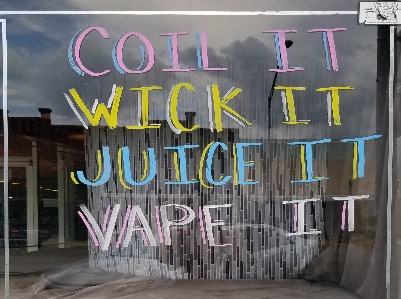 COIL IT
WICK IT
JUICE IT
VAPE IT